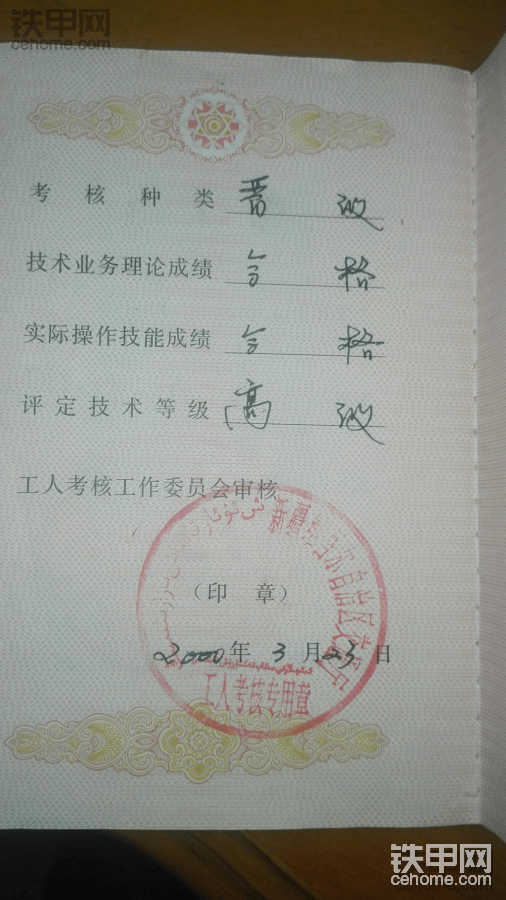 铁甲网
cehome.com
考核种类 晋级
技术业务理论成绩 合格
实际操作技能成绩 合格
评定技术等级 高级
工人考核工作委员会审核
新疆维吾尔自治区交通厅
(印章)
2000年3月23日
工人考核专用章
铁甲网
cehome.com